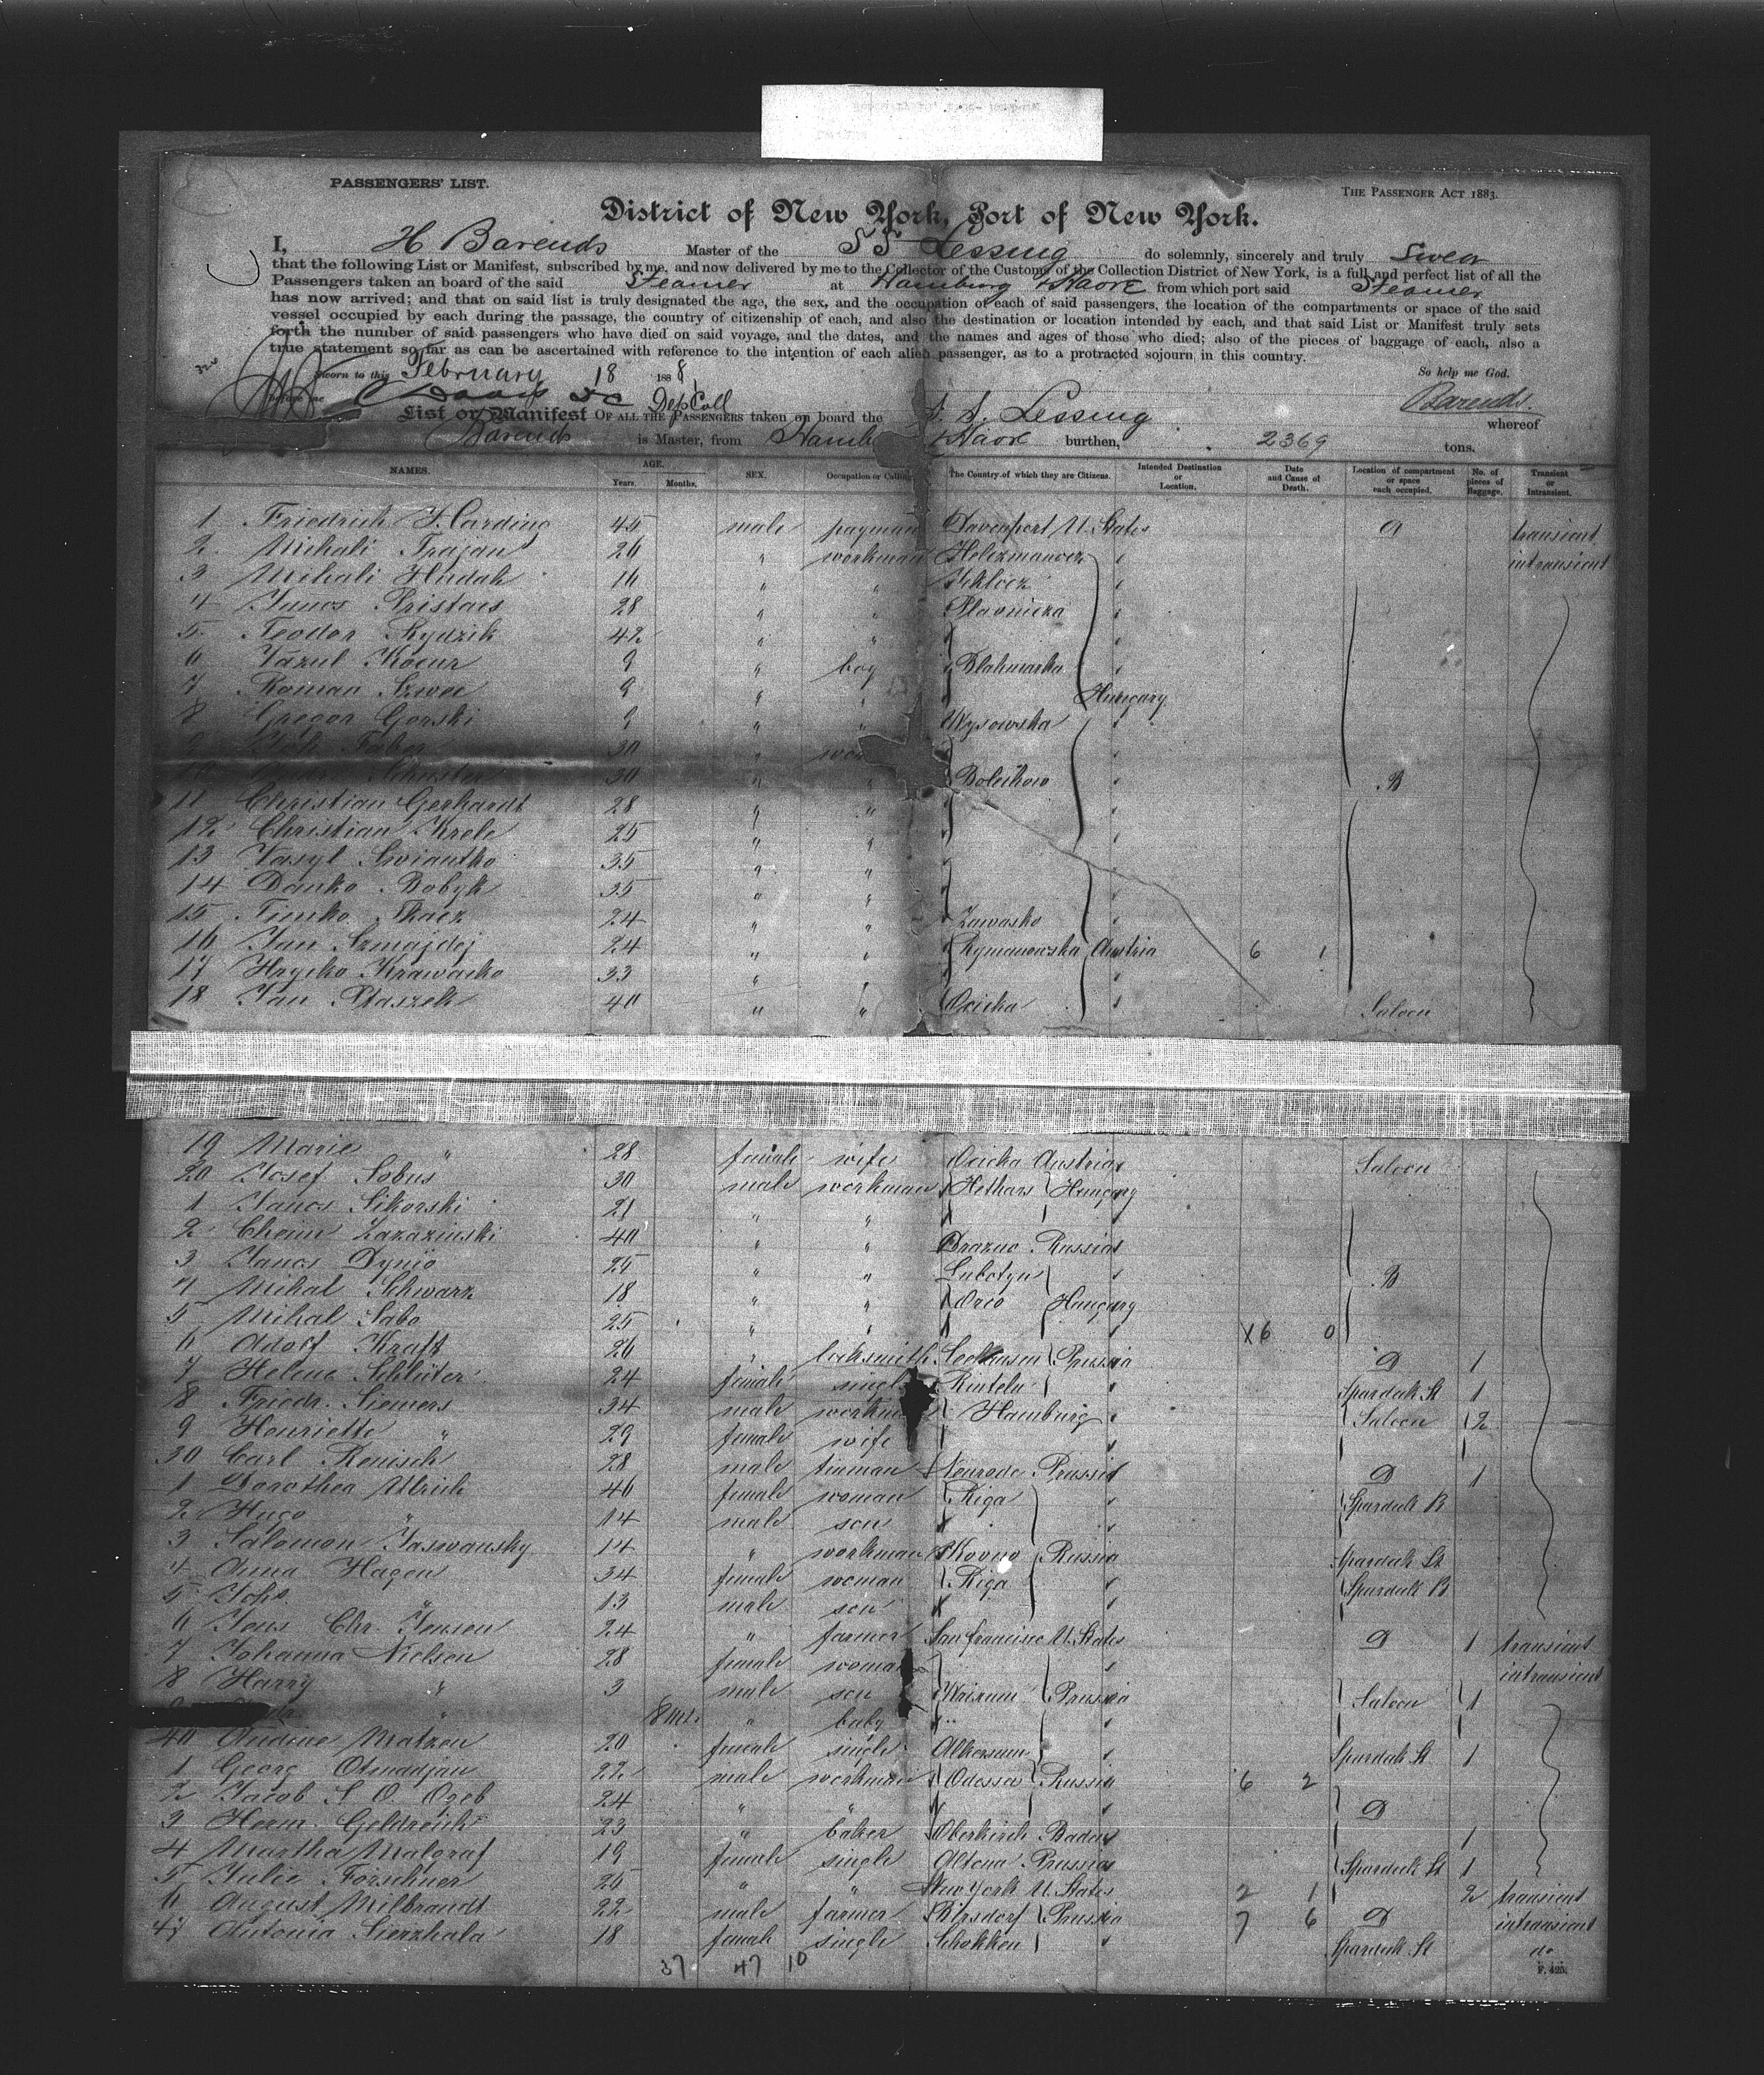 PASSENGERS' LIST.
THE PASSENGER ACT 1883.
District of New York, Port of New York.
I, H Barends Master of the S S Lessing do solemnly, sincerely and truly Swear
that the following List or Manifest, subscribed by me, and now delivered by me to the Collector of the Customs of the Collection District of New York, is a full and perfect list of all the
Passengers taken on board of the said Steamer at Hamburg & Havre from which port said Steamer
has now arrived; and that on said list is truly designated the age, the sex, and the occupation of each of said passengers, the location of the compartments or space of the said
vessel occupied by each during the passage, the country of citizenship of each, and also the destination or location intended by each, and that said List or Manifest truly sets
forth the number of said passengers who have died on said voyage, and the dates, and the names and ages of those who died; also of the pieces of baggage of each, also a
true statement so far as can be ascertained with reference to the intention of each alien passenger, as to a protracted sojourn in this country.
Sworn to this February 18 1888, So help me God.
before me Dep Coll Barends.
List or Manifest OF ALL THE PASSENGERS taken on board the S. S. Lessing whereof
Barends is Master, from Hamb & Havre burthen, 2369 tons.
NAMES. AGE. Years. Months. SEX. Occupation or Calling The Country of which they are Citizens. Intended Destination or Location. Date and Cause of Death. Location of compartment or space each occupied. No. of pieces of Baggage. Transient or Intransient.
1 Friedrich Harding 45 male payman Davenport U. States A transient
2 Mihali Trajan 26 " workman intransient
3 Mihali Hudak 16 " "
4 Janos Pristacs 28 " " Plavnicza
5 Teodor Rydzik 42 " "
6 Kocur 9 " boy
7 Roman 9 " " Hungary
8 Gregor Gorski 9 " " Wysowska
9 Joh Faber 30 "
10 Schuster 30 " " Bolechow B
11 Christian Gerhardt 28 " "
12 Christian Krele 25 " "
13 Vasyl 35 " "
14 Danko Bobyk 35 " "
15 Timko Tkacz 24 " " Zawasko
16 Jan 24 " " Rymanowska Austria 6 1
17 Hrycko 33 "
18 Jan Ptaszek 40 " " Saloon
19 Marie " 28 female wife Austria Saloon
20 Josef Sobus 30 male workman Hethars Hungary
1 Janos Sikorski 21 " "
2 Chaim 40 " " Russia
3 Janos 25 " " Lubotyn B
4 Mihal Schwarz 18 " " Hungary
5 Mihal Sabo 25 " " X6 0
6 Adolf Kraft 26 " locksmith Prussia D 1
7 Helene Schlüter 24 female single Rinteln Spardeck St 1
8 Friedr. Siewers 34 male workman Hamburg Saloon 2
9 Henriette " 29 female wife
30 Carl Renisch 28 male tinman Neurode Prussia D 1
1 Dorothea Ulrich 46 female woman Riga Spardeck B
2 Hugo " 14 male son
3 Salomon Jaswansky 14 " workman Kovno Russia Spardeck St
4 Anna Hagen 34 female woman Riga Spardeck B
5 Joh. " 13 male son
6 Jens Chr. Jensen 24 " farmer San francisco U. States D 1 transient
7 Johanna Nielsen 28 female woman intransient
8 Harry " 3 male son Wrixum Prussia Saloon 1
" 8 mts " baby
40 Matzen 20 female single Alkersum Spardeck St 1
1 Georg 22 male workman Odessa Russia 6 2
2 Jacob S. O. 24 " " D
3 Herm. Geldreich 23 " baker Oberkirch Baden 1
4 Martha Malgraf 19 female single Altona Prussia Spardeck St 1
5 Julie Forschner 25 " " New York U. States 2 1 2 transient
6 August Milbrandt 22 male farmer Prussia 7 6 D intransient
47 Antonia 18 female single Schokken Spardeck St do
37 47 10
F. 425.